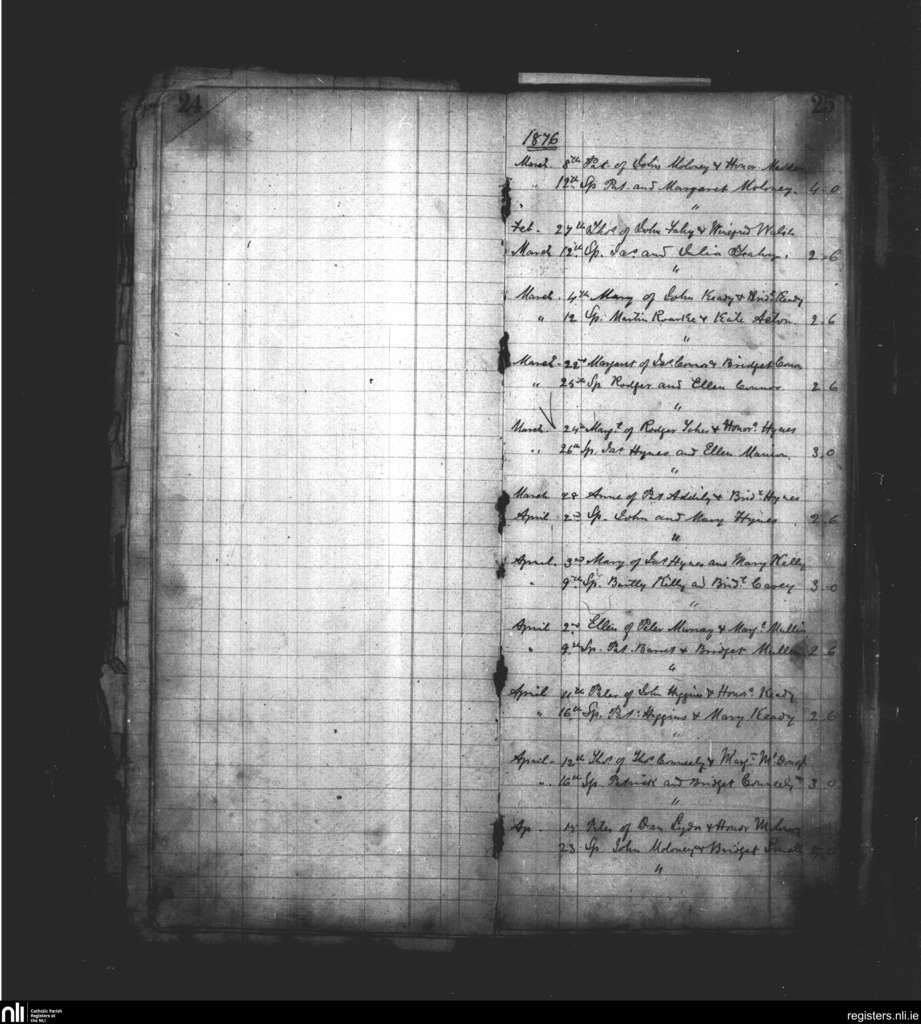 24
25
1876
March 8th Pat of John Moloney & Honor
" 12th Sp Pat. and Margaret Moloney. 4-0
"
Feb. 27th Thos of John Fahy & Winifred Walsh
March 12th Sp. Jas. and Julia 2-6
"
March 4th Mary of John Keady & Bridt Keady
" 12 Sp. Martin Roarke & Kate 2-6
"
March 22nd Margaret of Jas Connor & Bridget Connor
" 25th Sp Rodger and Ellen Connor 2 6
"
March 24th Margt of Rodger & Honora Hynes
" 26th Sp. Jas Hynes and Ellen Mannion. 3.0
"
March 28 Anne of Pat & Bridt Hynes
April 2nd Sp. John and Mary Hynes 2 6
"
April. 3rd Mary of Jas Hynes and Mary Kelly
" 9th Sp. Bartly Kelly ad Bridt Casey 3 0
"
April 2nd Ellen of Peter Murray & Margt Mullin
" 9th Sp. Pat & Bridget Mullen 2 6
"
April 11th Peter of John Higgins & Honora Keady
" 16th Sp. Pat. Higgins & Mary Keady 2 6
"
April- 12th Thos of Thos Conneely & Margt
" 16th Sp. Patrick and Bridget Conneely 3 0
"
Ap. 15 Peter of Dan Lydon & Honor
23 Sp John Moloney & Bridget Small
"
nli
Catholic Parish
Registers at
the NLI
registers.nli.ie